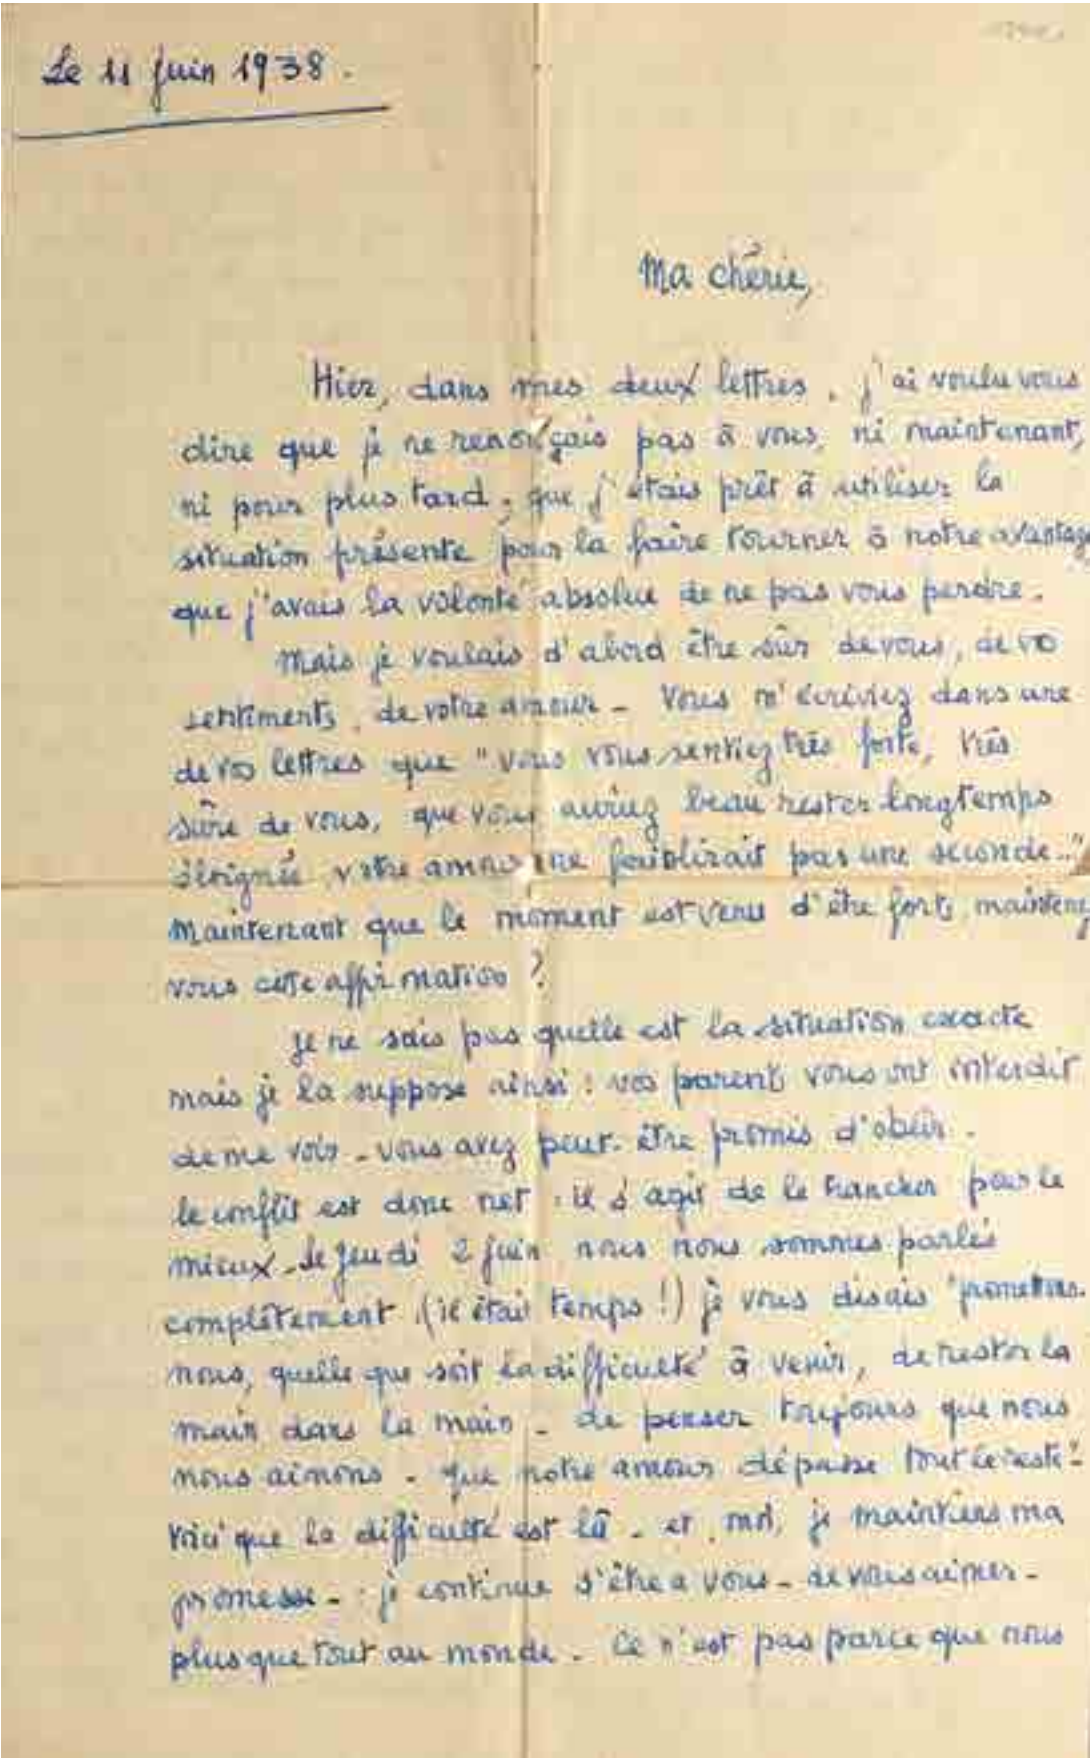 Le 11 juin 1938.
Ma chérie,
Hier, dans mes deux lettres, j'ai voulu vous
dire que je ne renonçais pas à vous, ni maintenant,
ni pour plus tard, que j'étais prêt à utiliser la
situation présente pour la faire tourner à notre avantage
que j'avais la volonté absolue de ne pas vous perdre.
Mais je voulais d'abord être sûr de vous, de vos
sentiments, de votre amour - Vous m'écriviez dans une
de vos lettres que "vous vous sentiez très forte, très
sûre de vous, que vous auriez beau rester longtemps
éloignée, votre amour ne faiblirait pas une seconde..."
Maintenant que le moment est venu d'être forte, maintenez
vous cette affirmation ?
Je ne sais pas quelle est la situation exacte
mais je la suppose ainsi : vos parents vous ont interdit
de me voir - vous avez peut-être promis d'obéir.
le conflit est donc net : il s'agit de le trancher pour le
mieux - Le jeudi 2 juin nous nous sommes parlés
complètement, (il était temps !) je vous disais "promettons-
nous, quelle que soit la difficulté à venir, de rester la
main dans la main - de penser toujours que nous
nous aimons - que notre amour dépasse tout le reste" -
Voici que la difficulté est là - et, moi, je maintiens ma
promesse - : je continue d'être à vous - de vous aimer -
plus que tout au monde. Ce n'est pas parce que nous